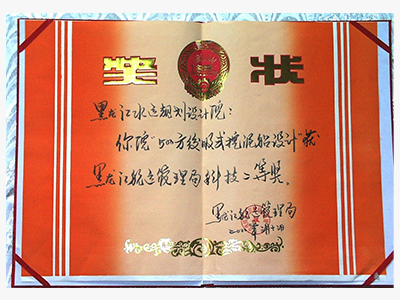 奖 状
黑龙江水运规划设计院：
你院“50方绞吸式挖泥船设计”获
黑龙江航运管理局科技二等奖。
黑龙江航运管理局